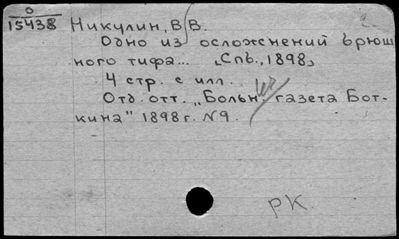 0
15438 Никулин, В. В.
Одно из осложнений брюш
ного тифа... [Спб., 1898]
4 стр. с илл.
Отд. отт. „Больн. газета Бот-
кина" 1898 г. N9.
РК.